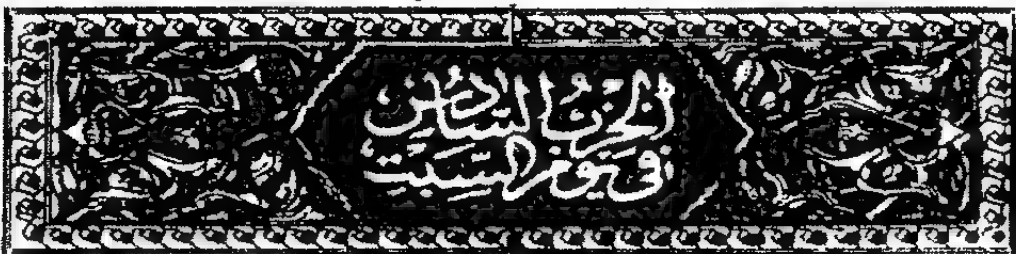 الحزب السادس
في يوم السبت